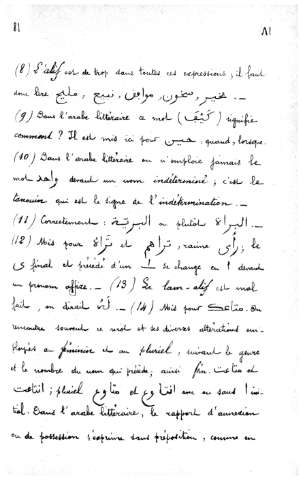 81 ٨١
(8) L'alif est de trop dans toutes ces expressions ; il faut
donc lire بخير, سخون, موافق, نبيع, مليح. —
(9) Dans l'arabe littéraire ce mot (كَيْفَ) signifie
comment ? Il est mis ici pour حين : quand, lorsque.
(10) Dans l'arabe littéraire on n'emploie jamais le
mot واحد devant un nom indéterminé ; c'est le
tanouin qui est le signe de l'indétermination. —
(11) Correctement : البراة ou plutôt البريّة. —
(12) Mis pour تراه et تراهم, racine رأى ; le
ى final et précédé d'un ــَ se change en ا devant
un pronom affixe. — (13) Le lam-alif est mal
fait, on dirait لهُ. — (14) Mis pour متاعك. On
rencontre souvent ce mot et ses diverses altérations em-
ployés au féminin et au pluriel, suivant le genre
et le nombre du nom qui précède ; ainsi fém. متاعت et
انتاعت ; pluriel متاوع et انتاوع avec ou sans ا ini-
tial. Dans l'arabe littéraire, le rapport d'annexion
ou de possession s'exprime sans préposition, comme en